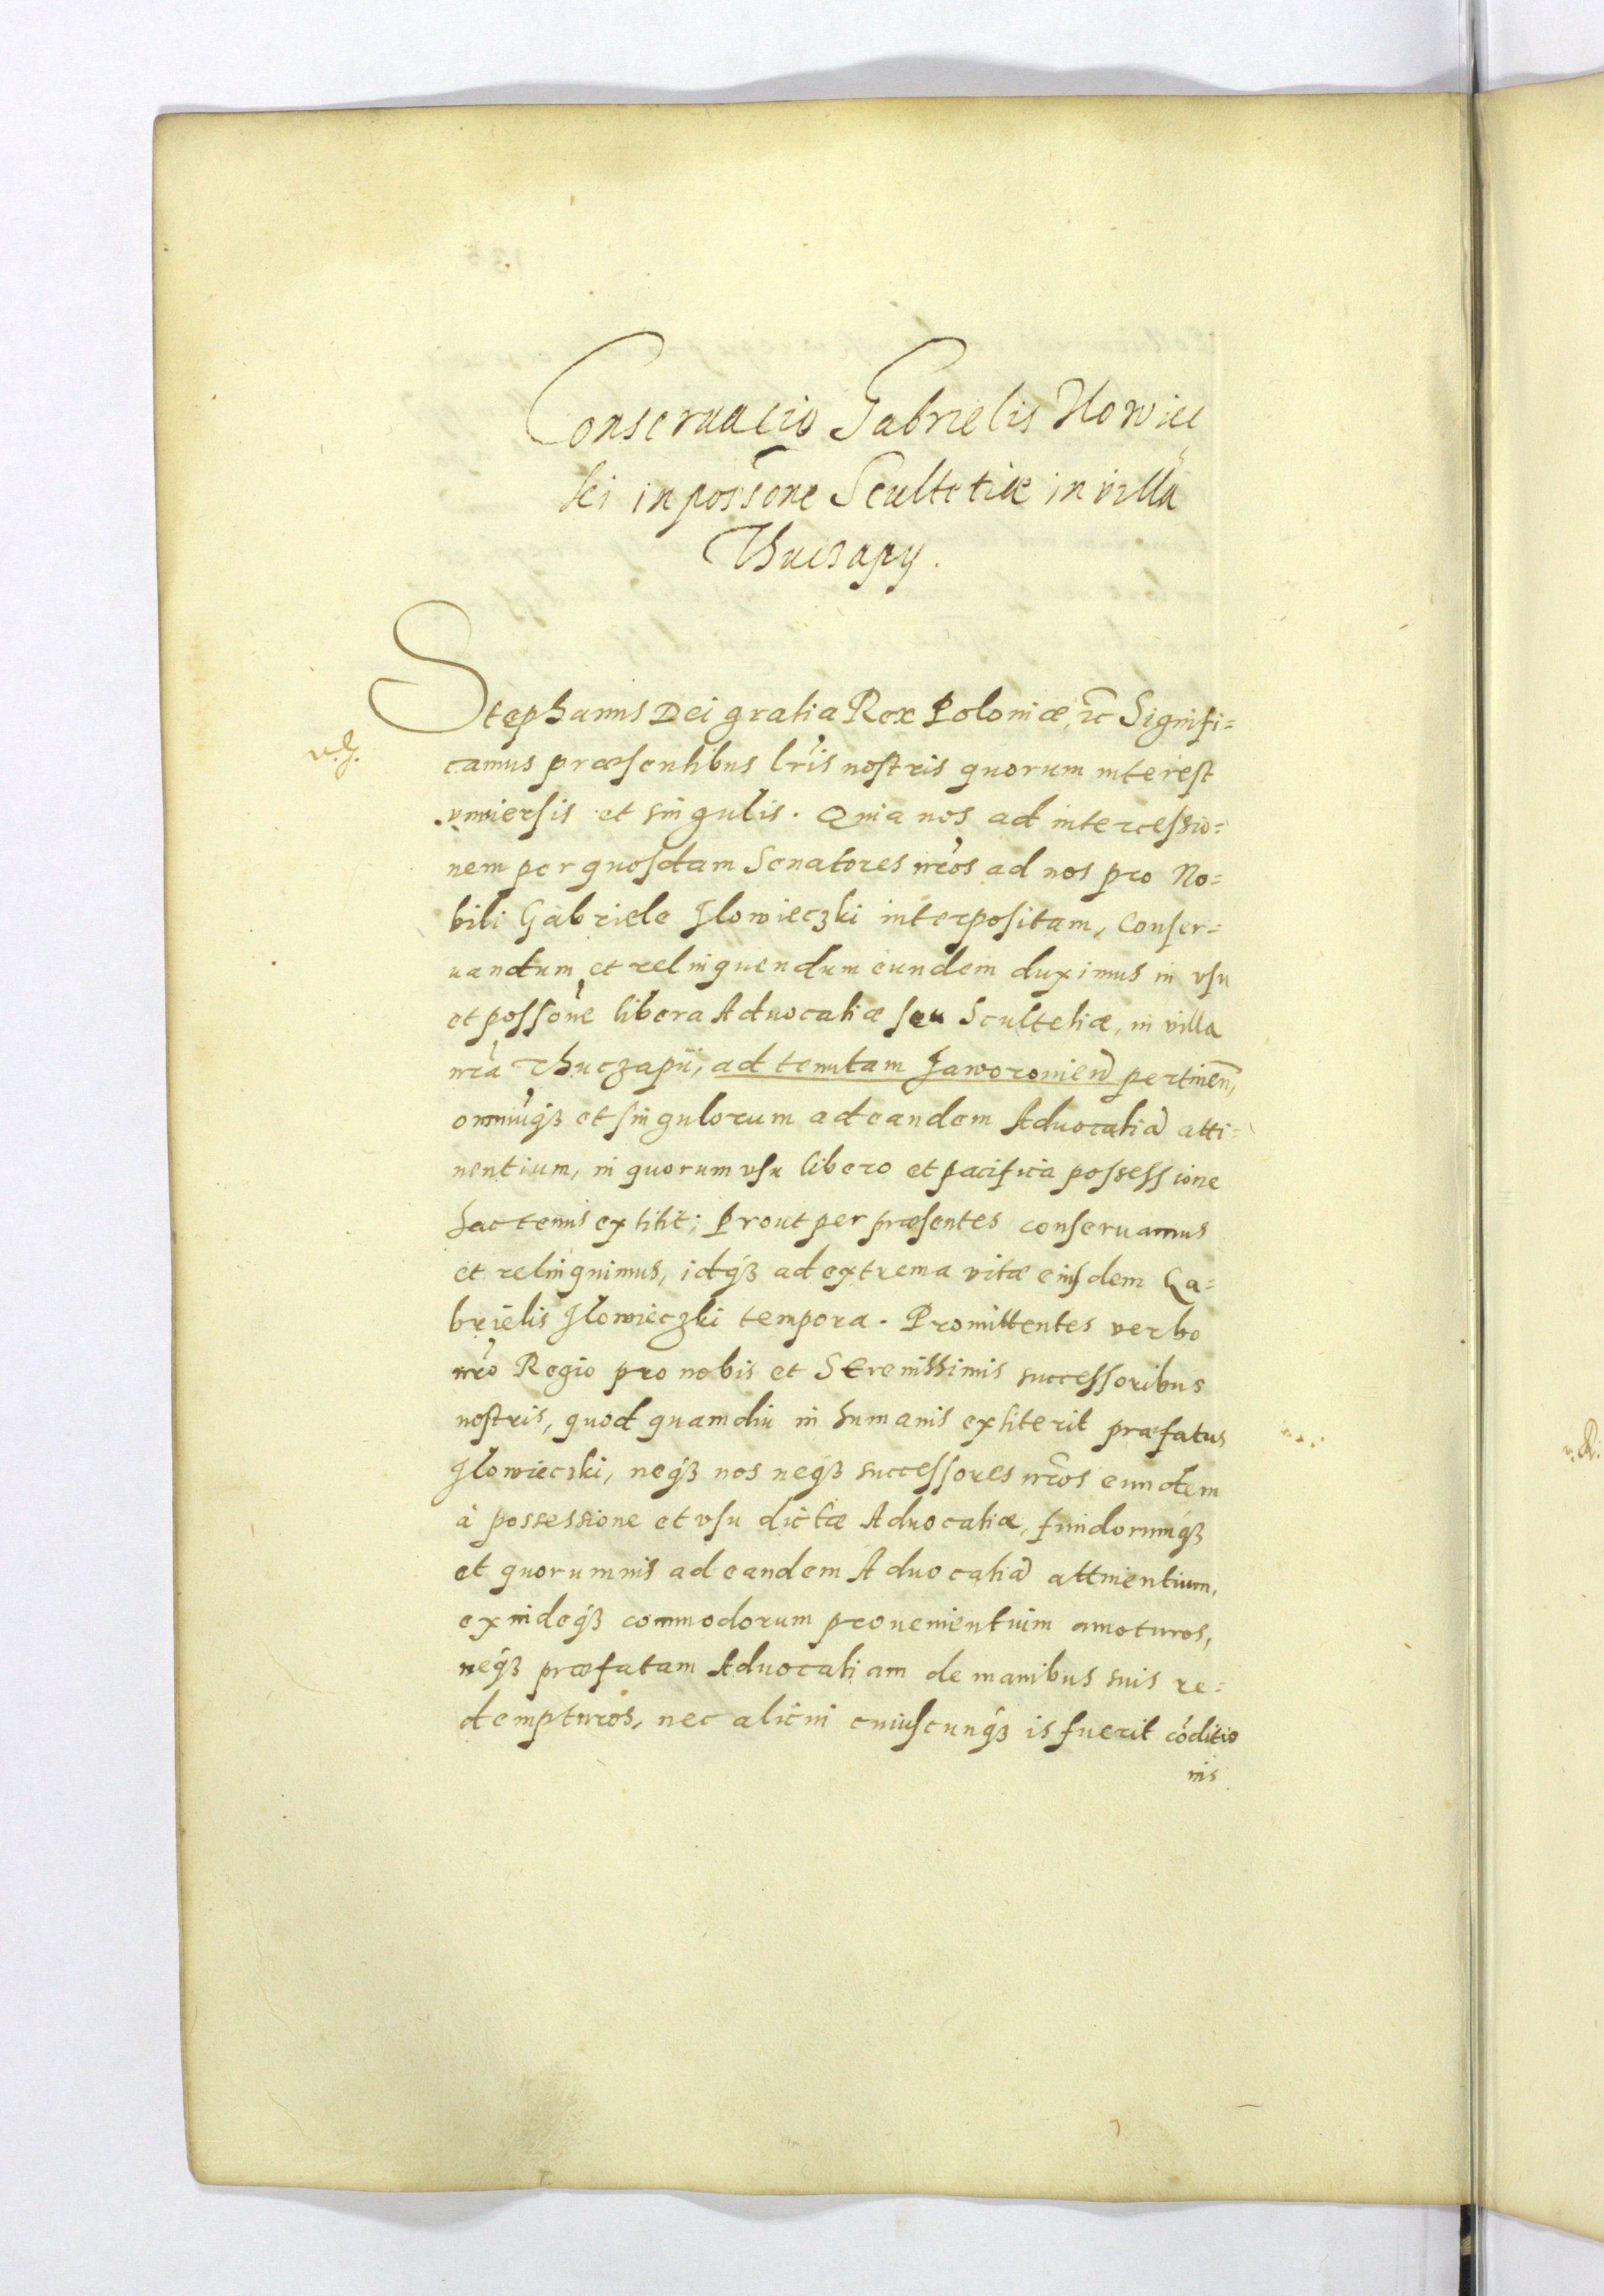 Conseruacio Gabrielis Ilowiec
ki in possōne Scultetiæ in villa
Thuczapy.
Stephanus Dei gratia Rex Poloniæ, ꝛc Signifi=
camus præsentibus lr̃is nostris quorum interest
vniuersis et singulis. Quia nos ad intercessio=
nem per quosdam Senatores nr̃os ad nos pro No=
bili Gabriele Jlowieczki interpositam, Conser=
uandum et relinquendum eundem duximus in vsu
et possōne libera Aduocatiæ seu Scultetiæ, in villa
nr̃a Thuczapÿ, ad tenutam Jaworouien̄ pertinen̄,
omniuq́ꝫ et singulorum ad eandem Aduocatiā atti=
nentium, in quorum vsu libero et pacifica possessione
hactenus extitit; Prout per præsentes conseruamus
et relinquimus, idq́ꝫ ad extrema vitæ eiusdem Ga=
brielis Jlowieczki tempora. Promittentes verbo
nr̃o Regio pro nobis et Serenissimis successoribus
nostris, quod quamdiu in humanis extiterit præfatus
Jlowieczki, neq́ꝫ nos neq́ꝫ successores nr̃os eundem
à possessione et vsu dictæ Aduocatiæ, fundorumq́ꝫ
et quorumuis ad eandem Aduocatiā attinentium,
exindeq́ꝫ commodorum prouenientium amoturos,
neq́ꝫ præfatam Aduocatiam de manibus suis re=
dempturos, nec alicui cuiuscunq́ꝫ is fuerit cōditio
nis